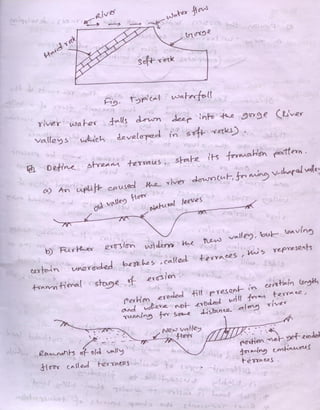 River
water flows
Hard rock
Gorge
Soft rock
Fig. Typical waterfall
river water falls down deep into the gorge (River
valleys which developed in soft rocks).
Define stream terraces, state its formation pattern.
a) An uplift caused the river downcut, forming v-shaped valley
old valley floor
Natural levees
b) Further erosion widens the new valley, but leaving
certain uneroded benches, called terraces, this represents
transitional stage of erosion.
Portion eroded till present in certain length
and where not eroded will form terrace,
running for some distance along river
New valley
floor
Remnants of old vally
floor called terraces
portion not yet eroded
forming continuous
terraces